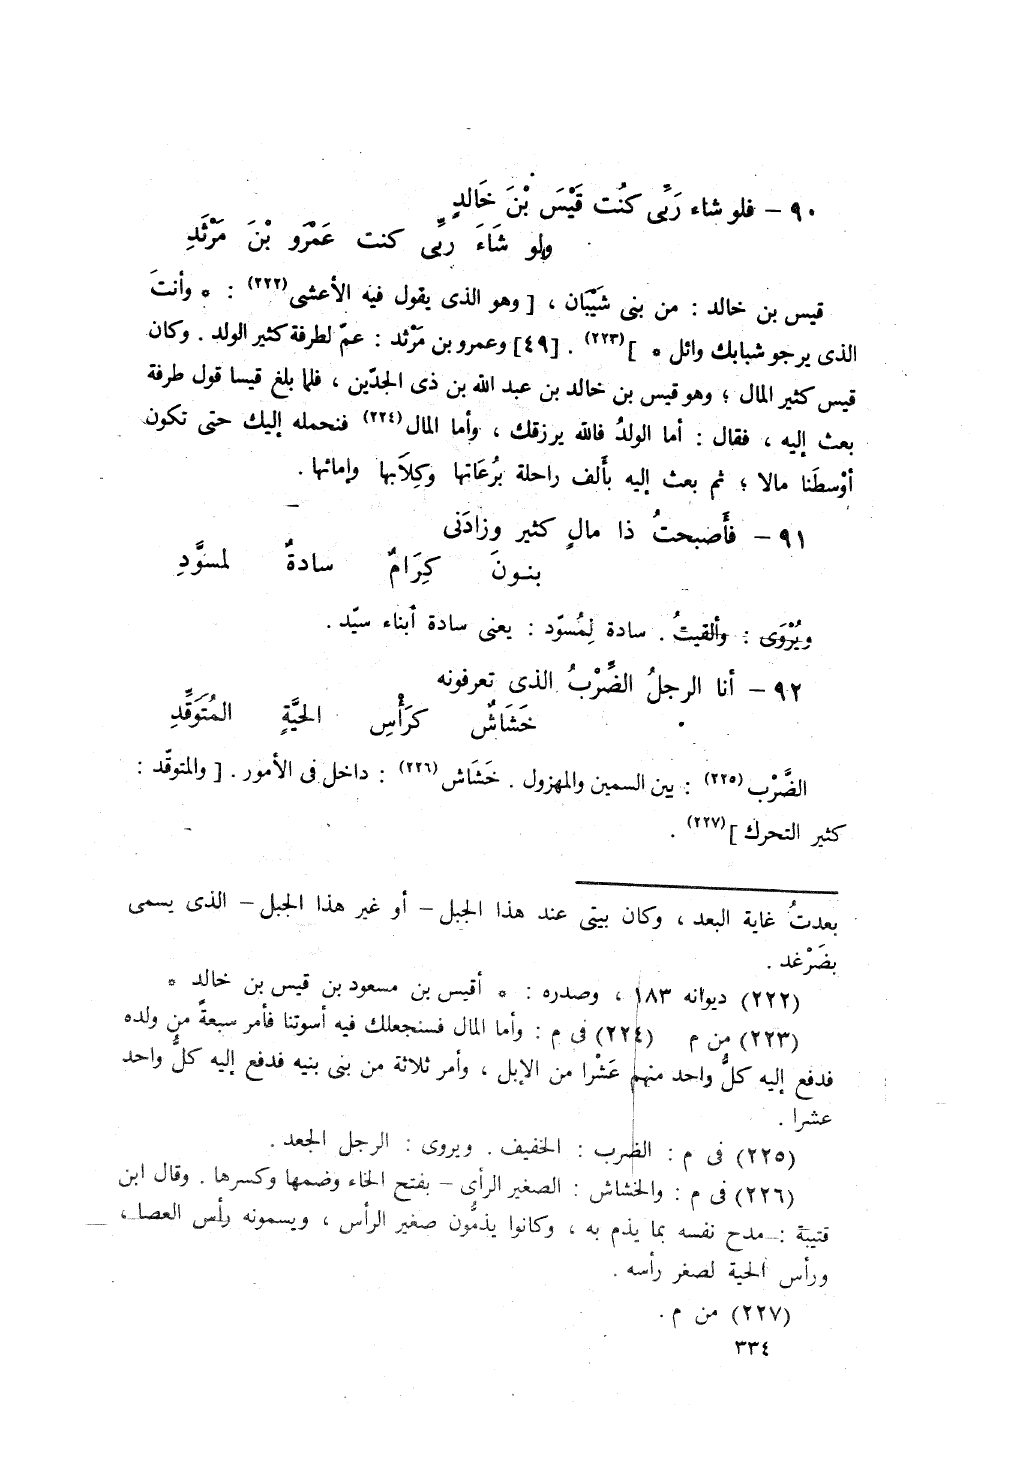 ٩٠ – فلو شاء رَبِّى كنُت قَيْسَ بْنَ خَالدٍ
ولو شَاءَ ربِّى كنت عَمْرَو بْنَ مَرْثَدِ
قيس بن خالد : من بنى شَيْبَان ، [ وهو الذى يقول فيه الأعشى (٢٢٢) : * وأنتَ
الذى يرجو شبابك وائل * ] (٢٢٣) . [٤٩] وعمرو بن مَرْثد : عمّ لطرفة كثير الولد . وكان
قيس كثير المال ؛ وهو قيس بن خالد بن عبد الله بن ذى الجدّين ، فلما بلغ قيسا قول طرفة
بعث إليه ، فقال : أما الولدُ فالله يرزقك ، وأما المال (٢٢٤) فنحمله إليك حتى تكون
أوْسطَنا مالا ؛ ثم بعث إليه بأَلف راحلة برُعَاتها وكِلاَبها وإمائها .
٩١ – فأَصبحتُ ذا مالٍ كثير وزادَنى
بنـونَ كِرَامٌ سادةٌ لمسوَّدِ
ويُرْوَى : وألقيتُ . سادة لِمُسوّد : يعنى سادة أبناء سيّد .
٩٢ – أنا الرجلُ الضَّرْبُ الذى تعرفونه
خَشَاشٌ كرَأْسِ الحيَّةِ المُتَوَقِّدِ
الضَّرْب (٢٢٥) : بين السمين والمهزول . خَشَاش (٢٢٦) : داخل فى الأمور . [ والمتوقّد :
كثير التحرك ] (٢٢٧) .
بعدتُ غاية البعد ، وكان بيتى عند هذا الجبل – أو غير هذا الجبل – الذى يسمى
بضَرْغد .
(٢٢٢) ديوانه ١٨٣ ، وصدره : * أقيس بن مسعود بن قيس بن خالد *
(٢٢٣) من م (٢٢٤) فى م : وأما المال فسنجعلك فيه أسوتنا فأمر سبعةً من ولده
فدفع إليه كلُّ واحد منهم عَشْرا من الإبل ، وأمر ثلاثة من بنى بنيه فدفع إليه كلُّ واحد
عشرا .
(٢٢٥) فى م : الضرب : الخفيف . ويروى : الرجل الجعد .
(٢٢٦) فى م : والخشاش : الصغير الرأى – بفتح الخاء وضمها وكسرها . وقال ابن
قتيبة : مدح نفسه بما يذم به ، وكانوا يذمُّون صغير الرأس ، ويسمونه رأس العصا ،
ورأس الحية لصغر رأسه .
(٢٢٧) من م .
٣٣٤